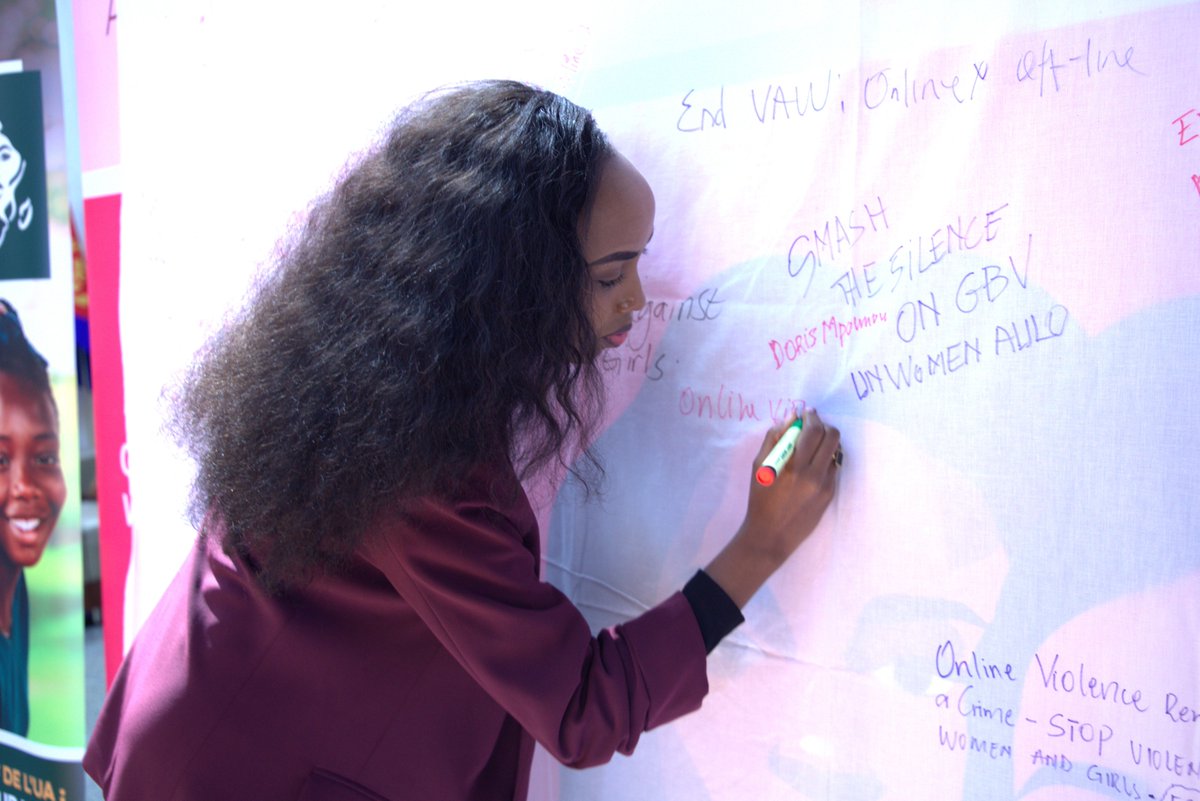 End VAW: Online & off-line
SMASH
THE SILENCE
ON GBV
UNWOMEN AULO
DORIS
gainst
Girls.
Online Vi
Online Violence Rem
a Crime - STOP VIOLEN
WOMEN AND GIRLS -
DE L'UA :